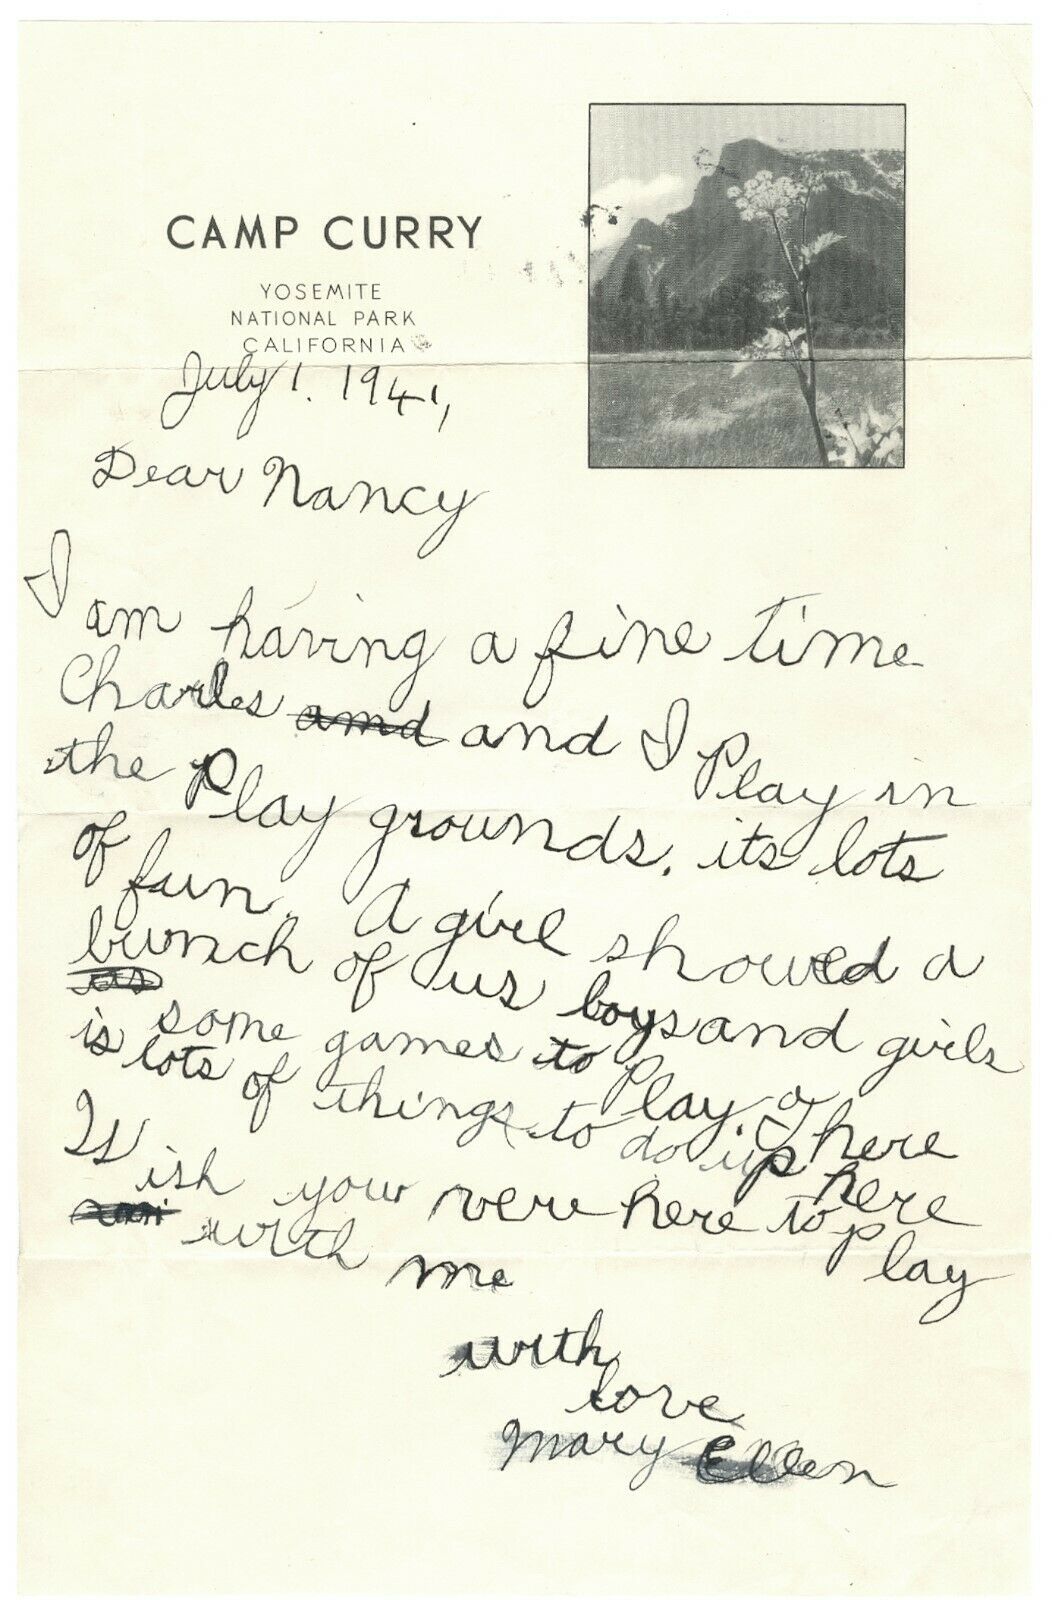 CAMP CURRY
YOSEMITE
NATIONAL PARK
CALIFORNIA
July 1. 1941,
Dear Nancy
I am having a fine time
Charles amd and I Play in
the Play grounds. its lots
of fun. A girl showed a
bunch of us boys and girls
as some games to Play. There
is lots of things to do up here
Wish you were here to play
with me
with
love
Mary Ellen